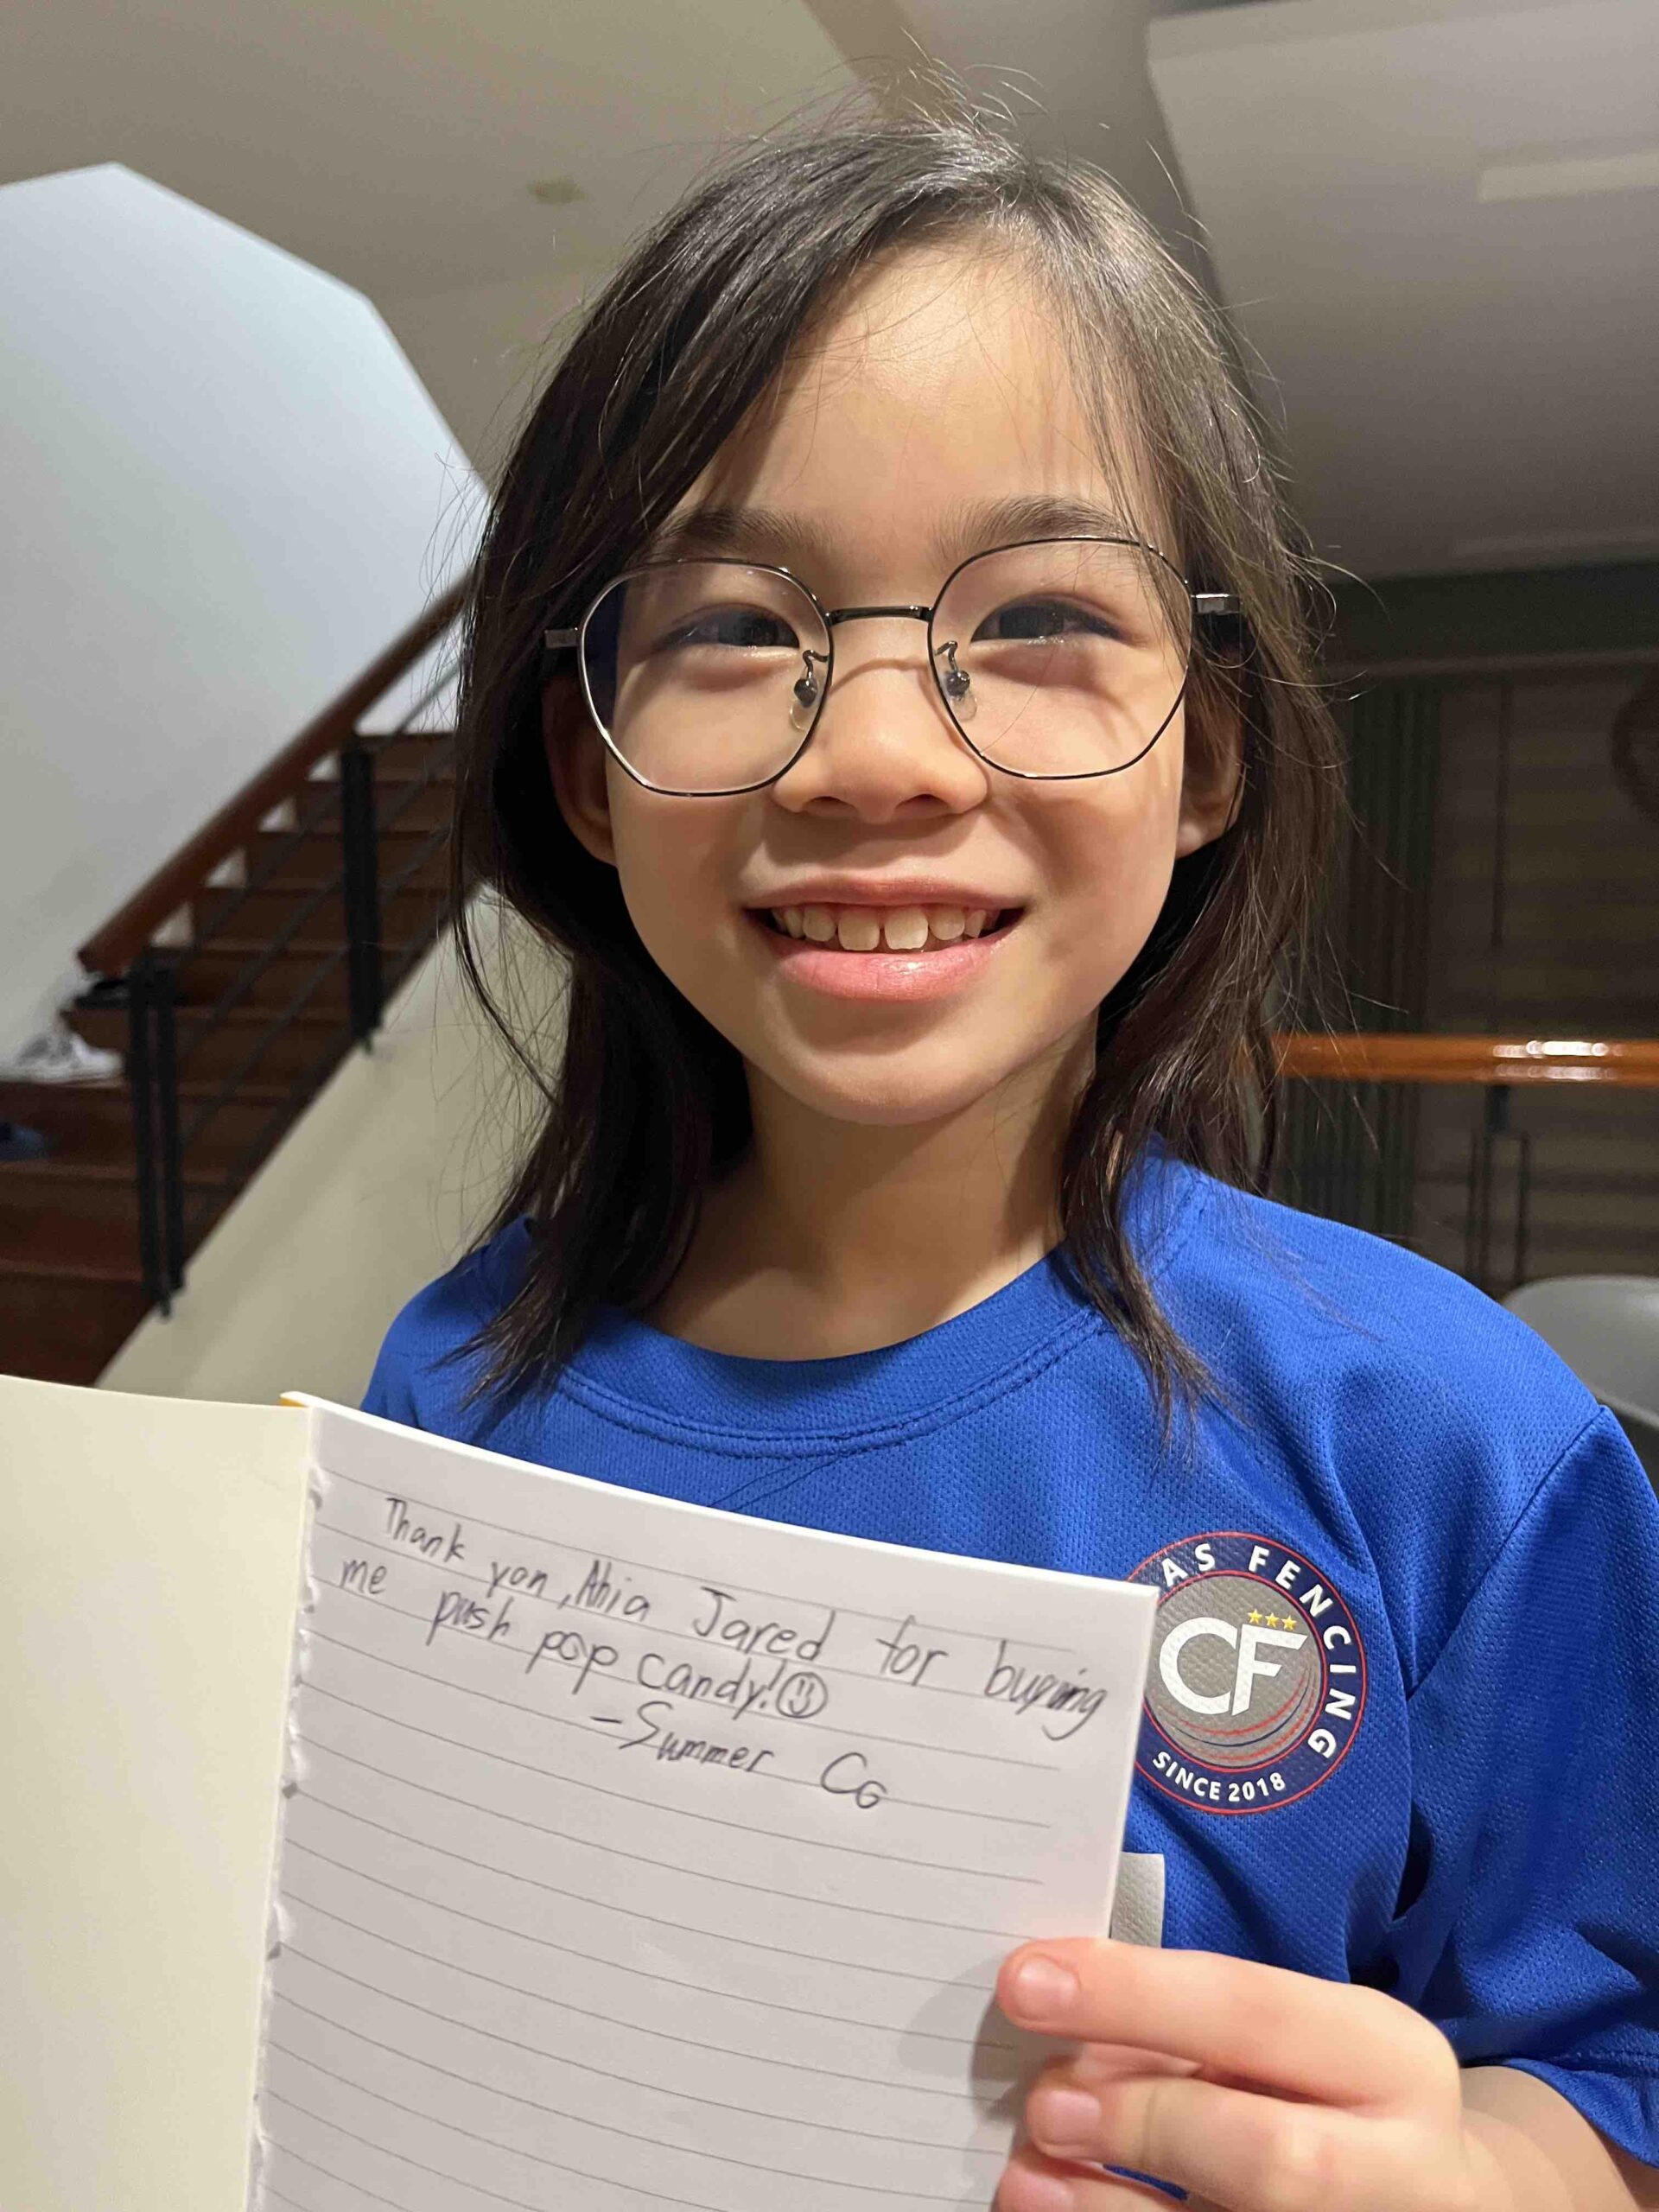 Thank you, Ahia Jared for buying
me push pop candy!
-Summer CG
AS FENCING
CF
SINCE 2018